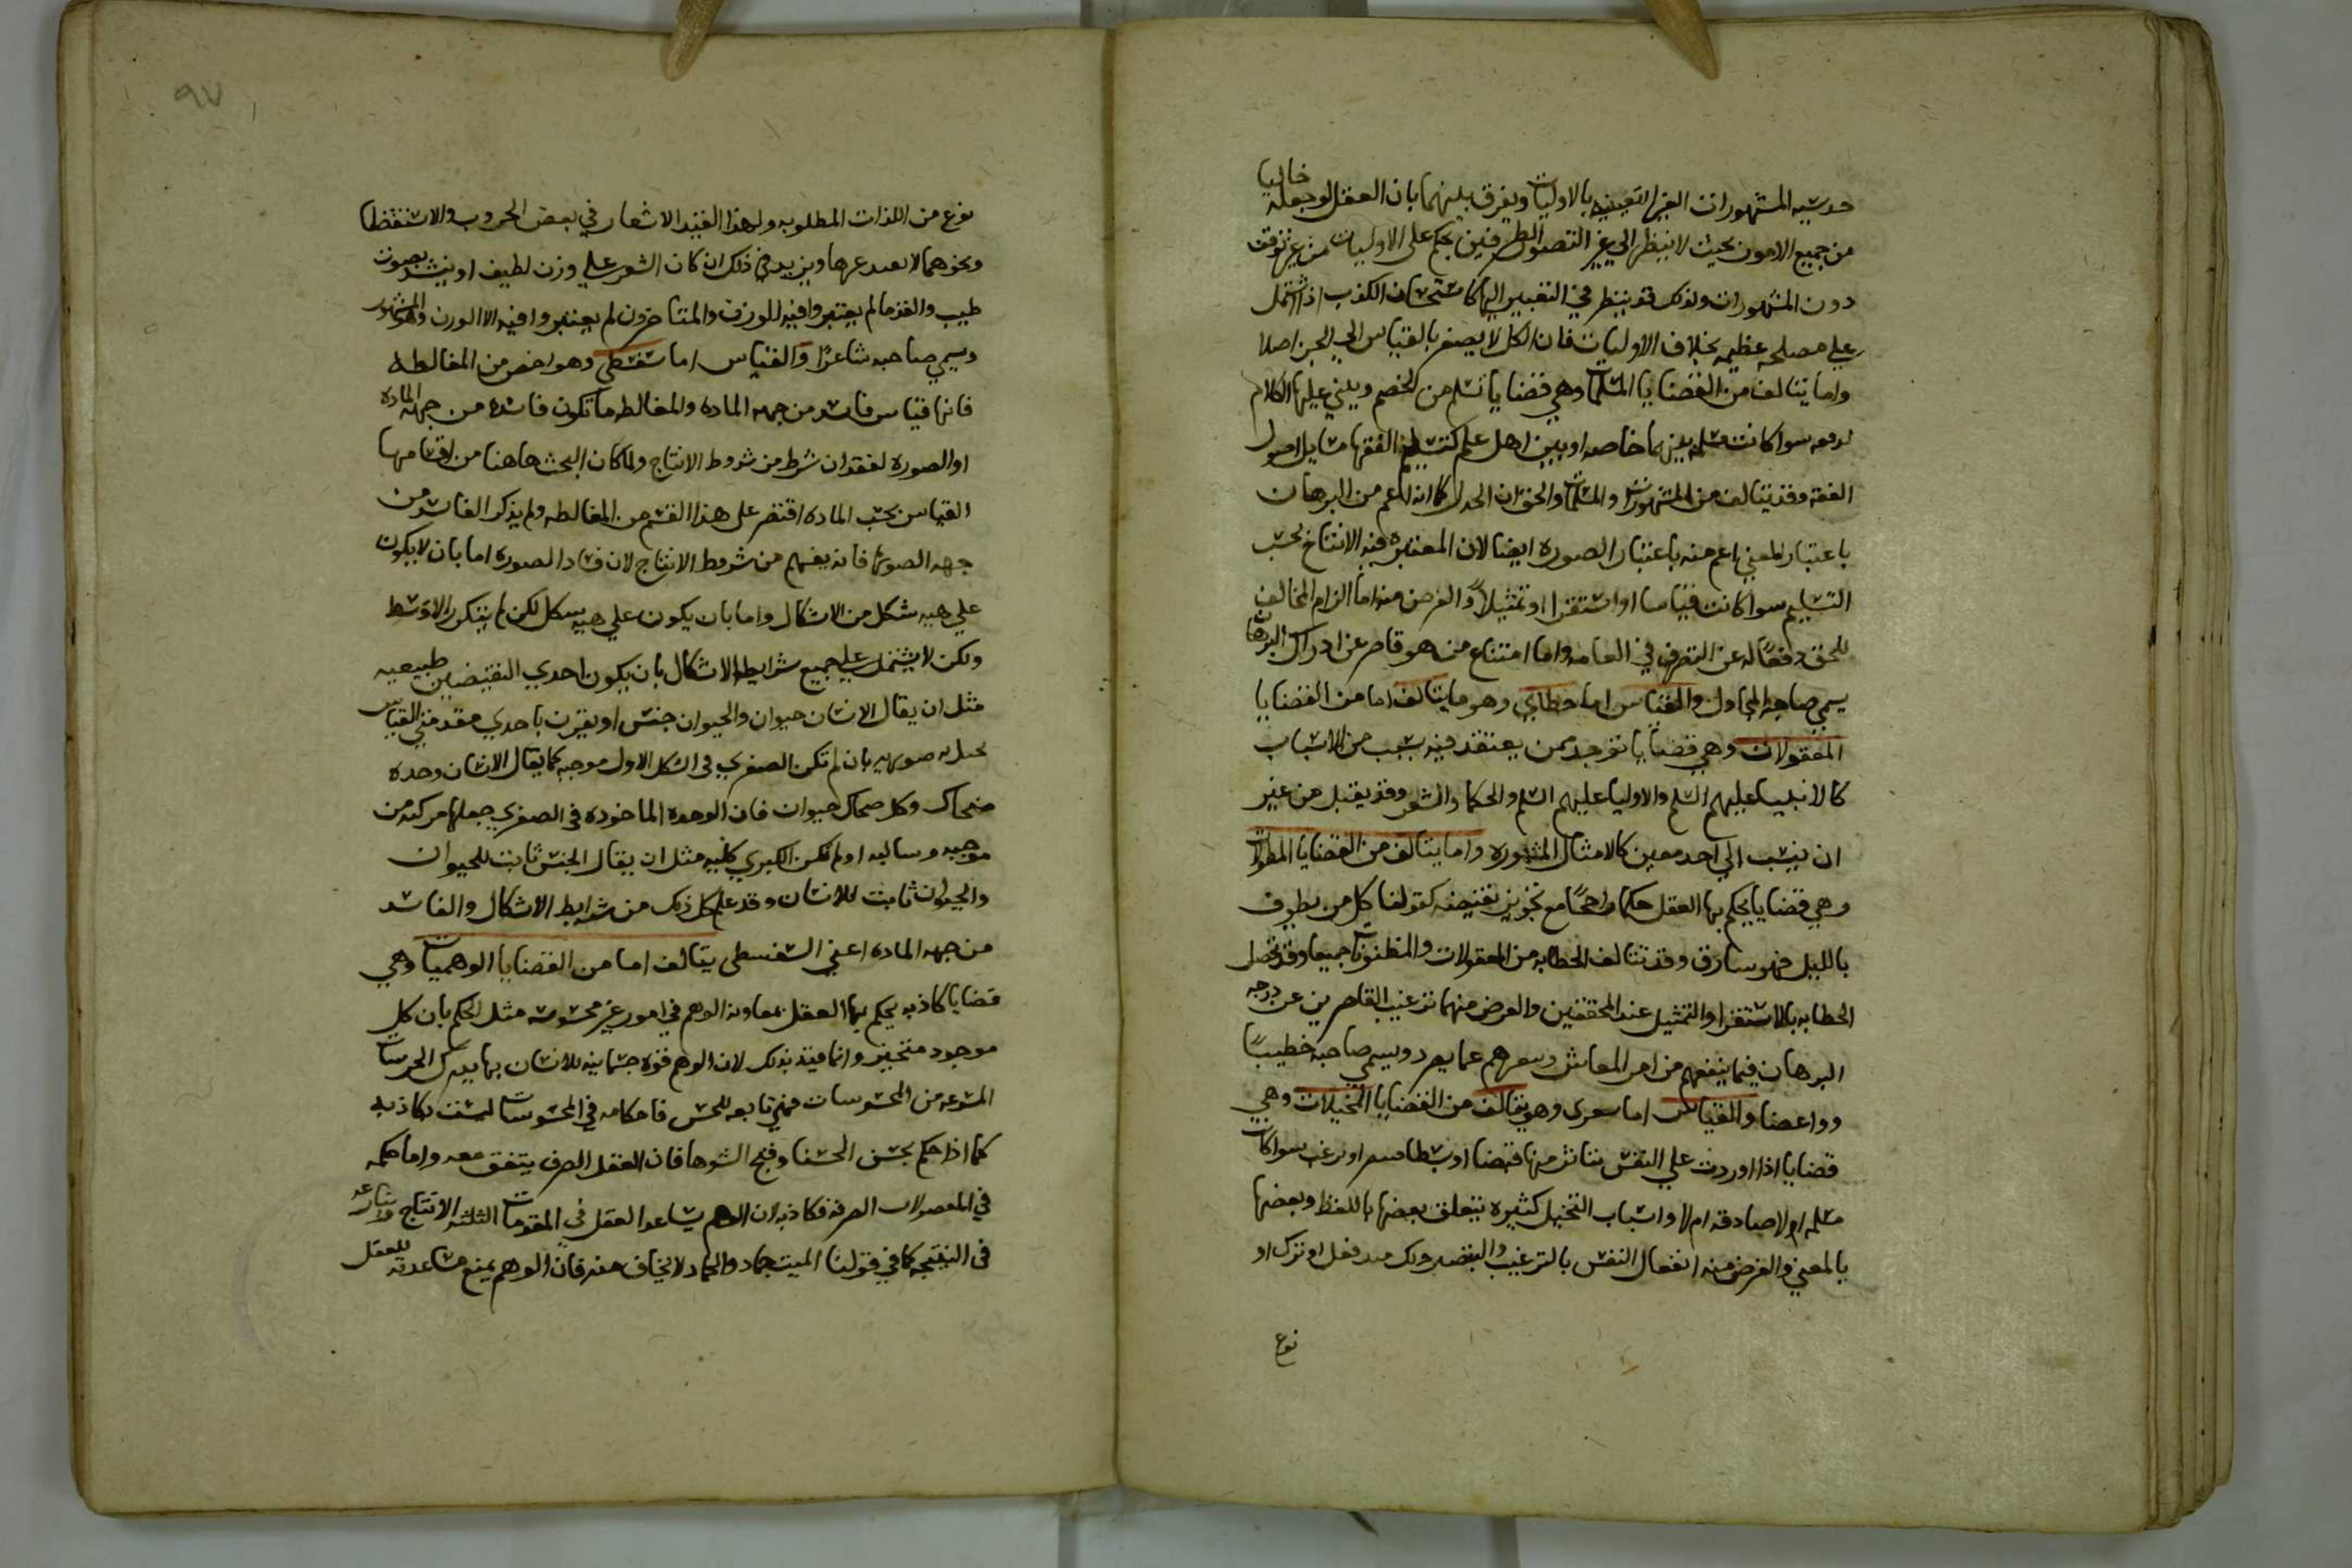 المشهورات الغير اليقينيه بالاوليات ويفرق بينهما بان العقل لو جعله خاليا
من جميع الامور بحيث لا ينظر الي غير التصور الطرفين يحكم علي الاوليات من غير توقف
دون المشهورات ولذلك قد ينظر في التغيير اليها كاستحسان الكذب اذا اشتمل
علي مصلحه عظيمه بخلاف الاوليات فان الكل لا يصغر بالقياس الي الجزء اصلا
واما يتالف من القضايا المسلمات وهي قضايا تسلم من الخصم ويبني عليها الكلام
لدفعه سوا كانت مسلمه بينهما خاصه او بين اهل علم كتسليم الفقها مسايل اصول
الفقه وقد يتالف من المشهورات والمسلمات والحق ان الجدل كما انه اعم من البرهان
باعتبار المعني اعم منه باعتبار الصورة ايضا لان المعتبره فيه الانتاج بحسب
التسليم سوا كانت قياسا او استقرا او تمثيلاً والغرض منه اما الزام المخالف
للحق دفعاً له عن التصرف في العامه واما امتناع من هو قاصر عن ادراك البرهان
يسمي صاحبه المجادل والقياس اما خطابي وهو ما يتالف اما من القضايا
المقبولات وهي قضايا توجد ممن يعتقد فيه بسبب من الاسباب
كالانبيا عليهم السلم والاوليا عليهم السلم والحكما والشعر وقد يقبل من غير
ان ينسب الي احد معين كالامثال المشهوره واما يتالف من القضايا المظنونات
وهي قضايا يحكم بها العقل حكما راجحًا مع تجويز نقيضه كقولنا كل من يطوف
بالليل فهو سارق وقد تتالف الخطابه من المقبولات والمظنونات جميعا وقد تحصل
الخطابه بالاستقرا والتمثيل عند المحققين والغرض منهما ترغيب القاصرين عن درجه
البرهان فيما ينفعهم من امر المعاش ويسمي صاحبه خطيبًا
وواعضا والقياس اما شعري وهو يتالف من القضايا المخيلات وهي
قضايا اذا اوردت علي النفس تتاثر منها قبضا او بسطا او ترغب سوا كانت
مسلمه ام لا صادقه ام لا واسباب التخييل كثيرة يتعلق بعضها باللفظ وبعضها
بالمعني والغرض منه انفعال النفس بالترغيب فعل او ترك او
نوع
٩٧
نوع من اللذات المطلوبه ولهذا الاشعار في بعض الحروب والاستقطا
ونحوهما ويزيد في ذلك ان كان الشعر علي وزن لطيف او ينشد بصوت
طيب والقدما لم يعتبروا فيه للوزن والمتاخرون لم يعتبروا فيه الا الوزن وهو المشهور
ويسمي صاحبه شاعرًا والقياس اما سفسطي وهو اخص من المغالطه
فانها قياس فاسد من جهه الماده والمغالطه ما تكون فاسده من جهه الماده
او الصوره لفقدان شرط من شروط الانتاج ولما كان البحث هاهنا من اقسامها
القياس بحسب الماده اقتصر علي هذا القسم من المغالطه ولم يذكر الفاسد من
جهه الصوره فانه يفهم من شروط الانتاج لان فساد الصوره اما بان لا يكون
علي هييه شكل من الاشكال واما بان يكون علي هييه شكل لكن لم يتكرر الاوسط
ولكن لا يشتمل علي جميع شرايط الاشكال بان يكون احدي طبيعيه
مثل ان يقال الانسان حيوان والحيوان جنس او يقترن باحدي مقدمتي القياس
بان لم تكن الصغري في الشكل الاول موجبه كما يقال الانسان وحده
ضحاك وكل ضحاك حيوان فان الوحده الماخوده في الصغري جعلها مركبه من
موجبه وسالبه او لم تكن الكبري كليه مثل ان يقال الجنس ثابت للحيوان
والحيوان ثابت للانسان وقد علم كل ذلك من شرايط الاشكال والفاسد
من جهه الماده اعني السفسطي يتالف اما من القضايا الوهميات وهي
قضايا كاذبه يحكم بها العقل بمعاونه الوهم في امور غير محسوسه مثل الحكم بان كل
موجود متحيز وانما قيد بذلك لان الوهم قوه جسمانيه للانسان بها يدرك الجزييات
المنتزعه من المحسوسات فهي تابعه للحس فاحكامه في المحسوسات ليست بكاذبه
كما اذا حكم بحسن الحسنا وقبح الشوها فان العقل الصرف يتفق معه واما حكمه
في المعقولات الصرفه فكاذبه لان الوهم يساعد العقل في المقدمات الانتاج
في النتيجه كما في قولنا الميت جماد والجماد لا يخاف منه فان الوهم يمنع مساعدته للعقل